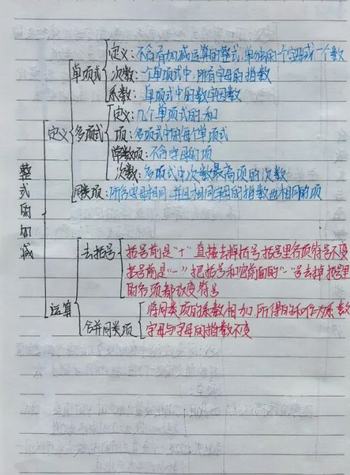 定义：不含有加减运算的整式，单独的一个字母或一个数
单项式
次数：一个单项式中，所有字母的指数
系数：单项式中的数字因数
定义：几个单项式的和
定义
多项式
项：多项式中的每个单项式
常数项：不含字母的项
次数：多项式中次数最高项的次数
同类项：所含字母相同，并且相同字母的指数也相同的项
整式的加减
去括号
括号前是"+"直接去掉括号，括号里各项符号不变
括号前是"-"把括号和它前面的"-"号去掉括号里
的各项都改变符号
运算
合并同类项
将同类项的系数相加所得的和作为系数
字母与字母同指数不变